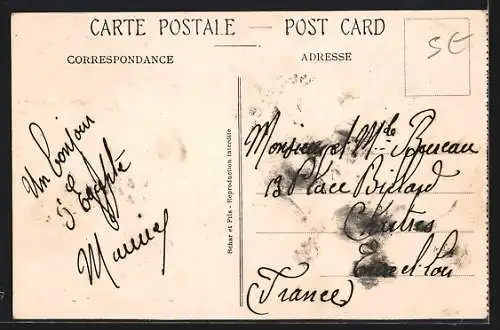 CARTE POSTALE — POST CARD
CORRESPONDANCE
ADRESSE
SE
Un bonjour
d'Egypte
Maurice
Behar et Fils - Reproduction interdite.
Monsieur et Mlle
13 Place Billard
Chartres
Eure et Loir
(France)